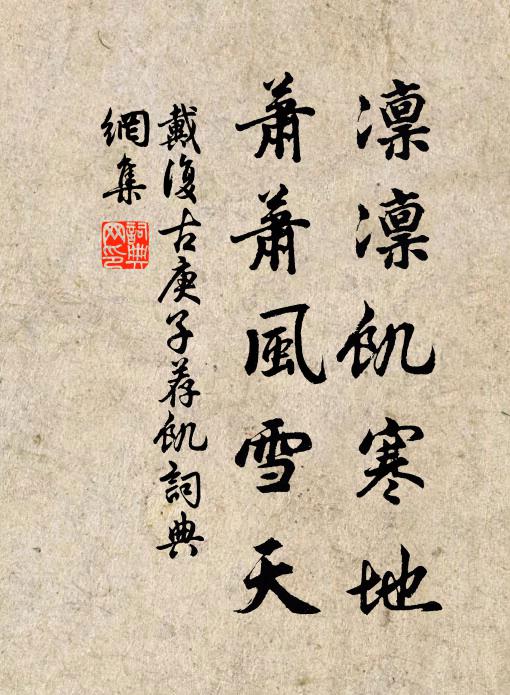 凛凛飢寒地
蕭蕭風雪天
戴復古庚子荐飢詞典
網集
詞典
网印